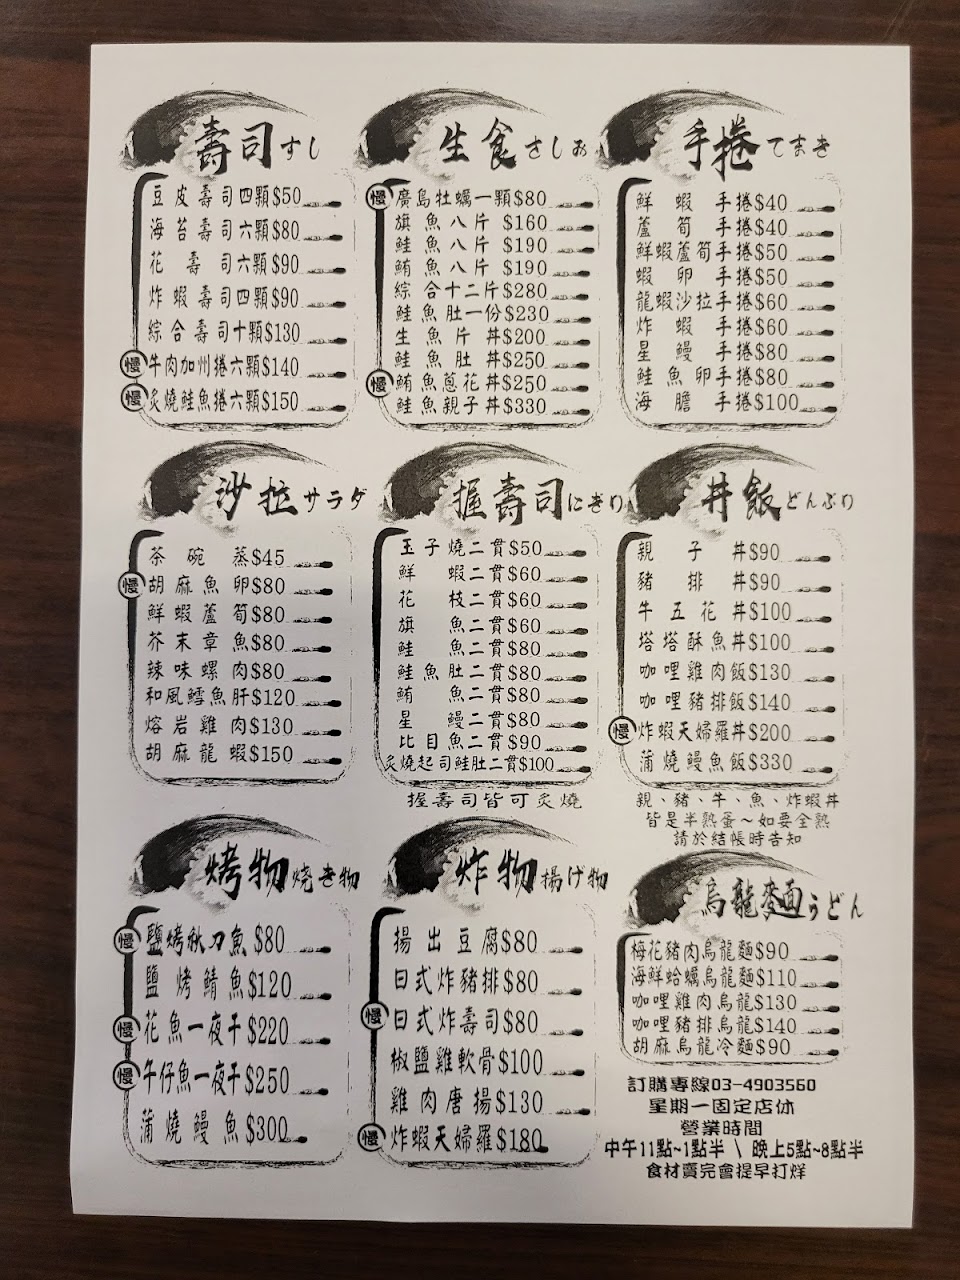 壽司すし
豆皮壽司四顆$50
海苔壽司六顆$80
花壽司六顆$90
炸蝦壽司四顆$90
綜合壽司十顆$130
慢 牛肉加州捲六顆$140
慢 炙燒鮭魚捲六顆$150
生食さしみ
慢 廣島牡蠣一顆$80
旗魚八片$160
鮭魚八片$190
鮪魚八片$190
綜合十二片$280
鮭魚肚一份$230
生魚片丼$200
鮭魚肚丼$250
慢 鮪魚蔥花丼$250
鮭魚親子丼$330
手捲てまき
鮮蝦手捲$40
蘆筍手捲$40
鮮蝦蘆筍手捲$50
蝦卵手捲$50
龍蝦沙拉手捲$60
炸蝦手捲$60
星鰻手捲$80
鮭魚卵手捲$80
海膽手捲$100
沙拉サラダ
茶碗蒸$45
慢 胡麻魚卵$80
鮮蝦蘆筍$80
芥末章魚$80
辣味螺肉$80
和風鱈魚肝$120
熔岩雞肉$130
胡麻龍蝦$150
握壽司にぎり
玉子燒二貫$50
鮮蝦二貫$60
花枝二貫$60
旗魚二貫$60
鮭魚二貫$80
鮭魚肚二貫$80
鮪魚二貫$80
星鰻二貫$80
比目魚二貫$90
炙燒起司鮭肚二貫$100
握壽司皆可炙燒
丼飯どんぶり
親子丼$90
豬排丼$90
牛五花丼$100
塔塔酥魚丼$100
咖哩雞肉飯$130
咖哩豬排飯$140
慢 炸蝦天婦羅丼$200
蒲燒鰻魚飯$330
親、豬、牛、魚、炸蝦丼
皆是半熟蛋～如要全熟
請於結帳時告知
烤物焼き物
慢 鹽烤秋刀魚$80
鹽烤鯖魚$120
慢 花魚一夜干$220
慢 午仔魚一夜干$250
蒲燒鰻魚$300
炸物揚げ物
揚出豆腐$80
日式炸豬排$80
慢 日式炸壽司$80
椒鹽雞軟骨$100
雞肉唐揚$130
慢 炸蝦天婦羅$180
烏龍麥面うどん
梅花豬肉烏龍麵$90
海鮮蛤蠣烏龍麵$110
咖哩雞肉烏龍$130
咖哩豬排烏龍$140
胡麻烏龍冷麵$90
訂購專線03-4903560
星期一固定店休
營業時間
中午11點~1點半 \ 晚上5點~8點半
食材賣完會提早打烊